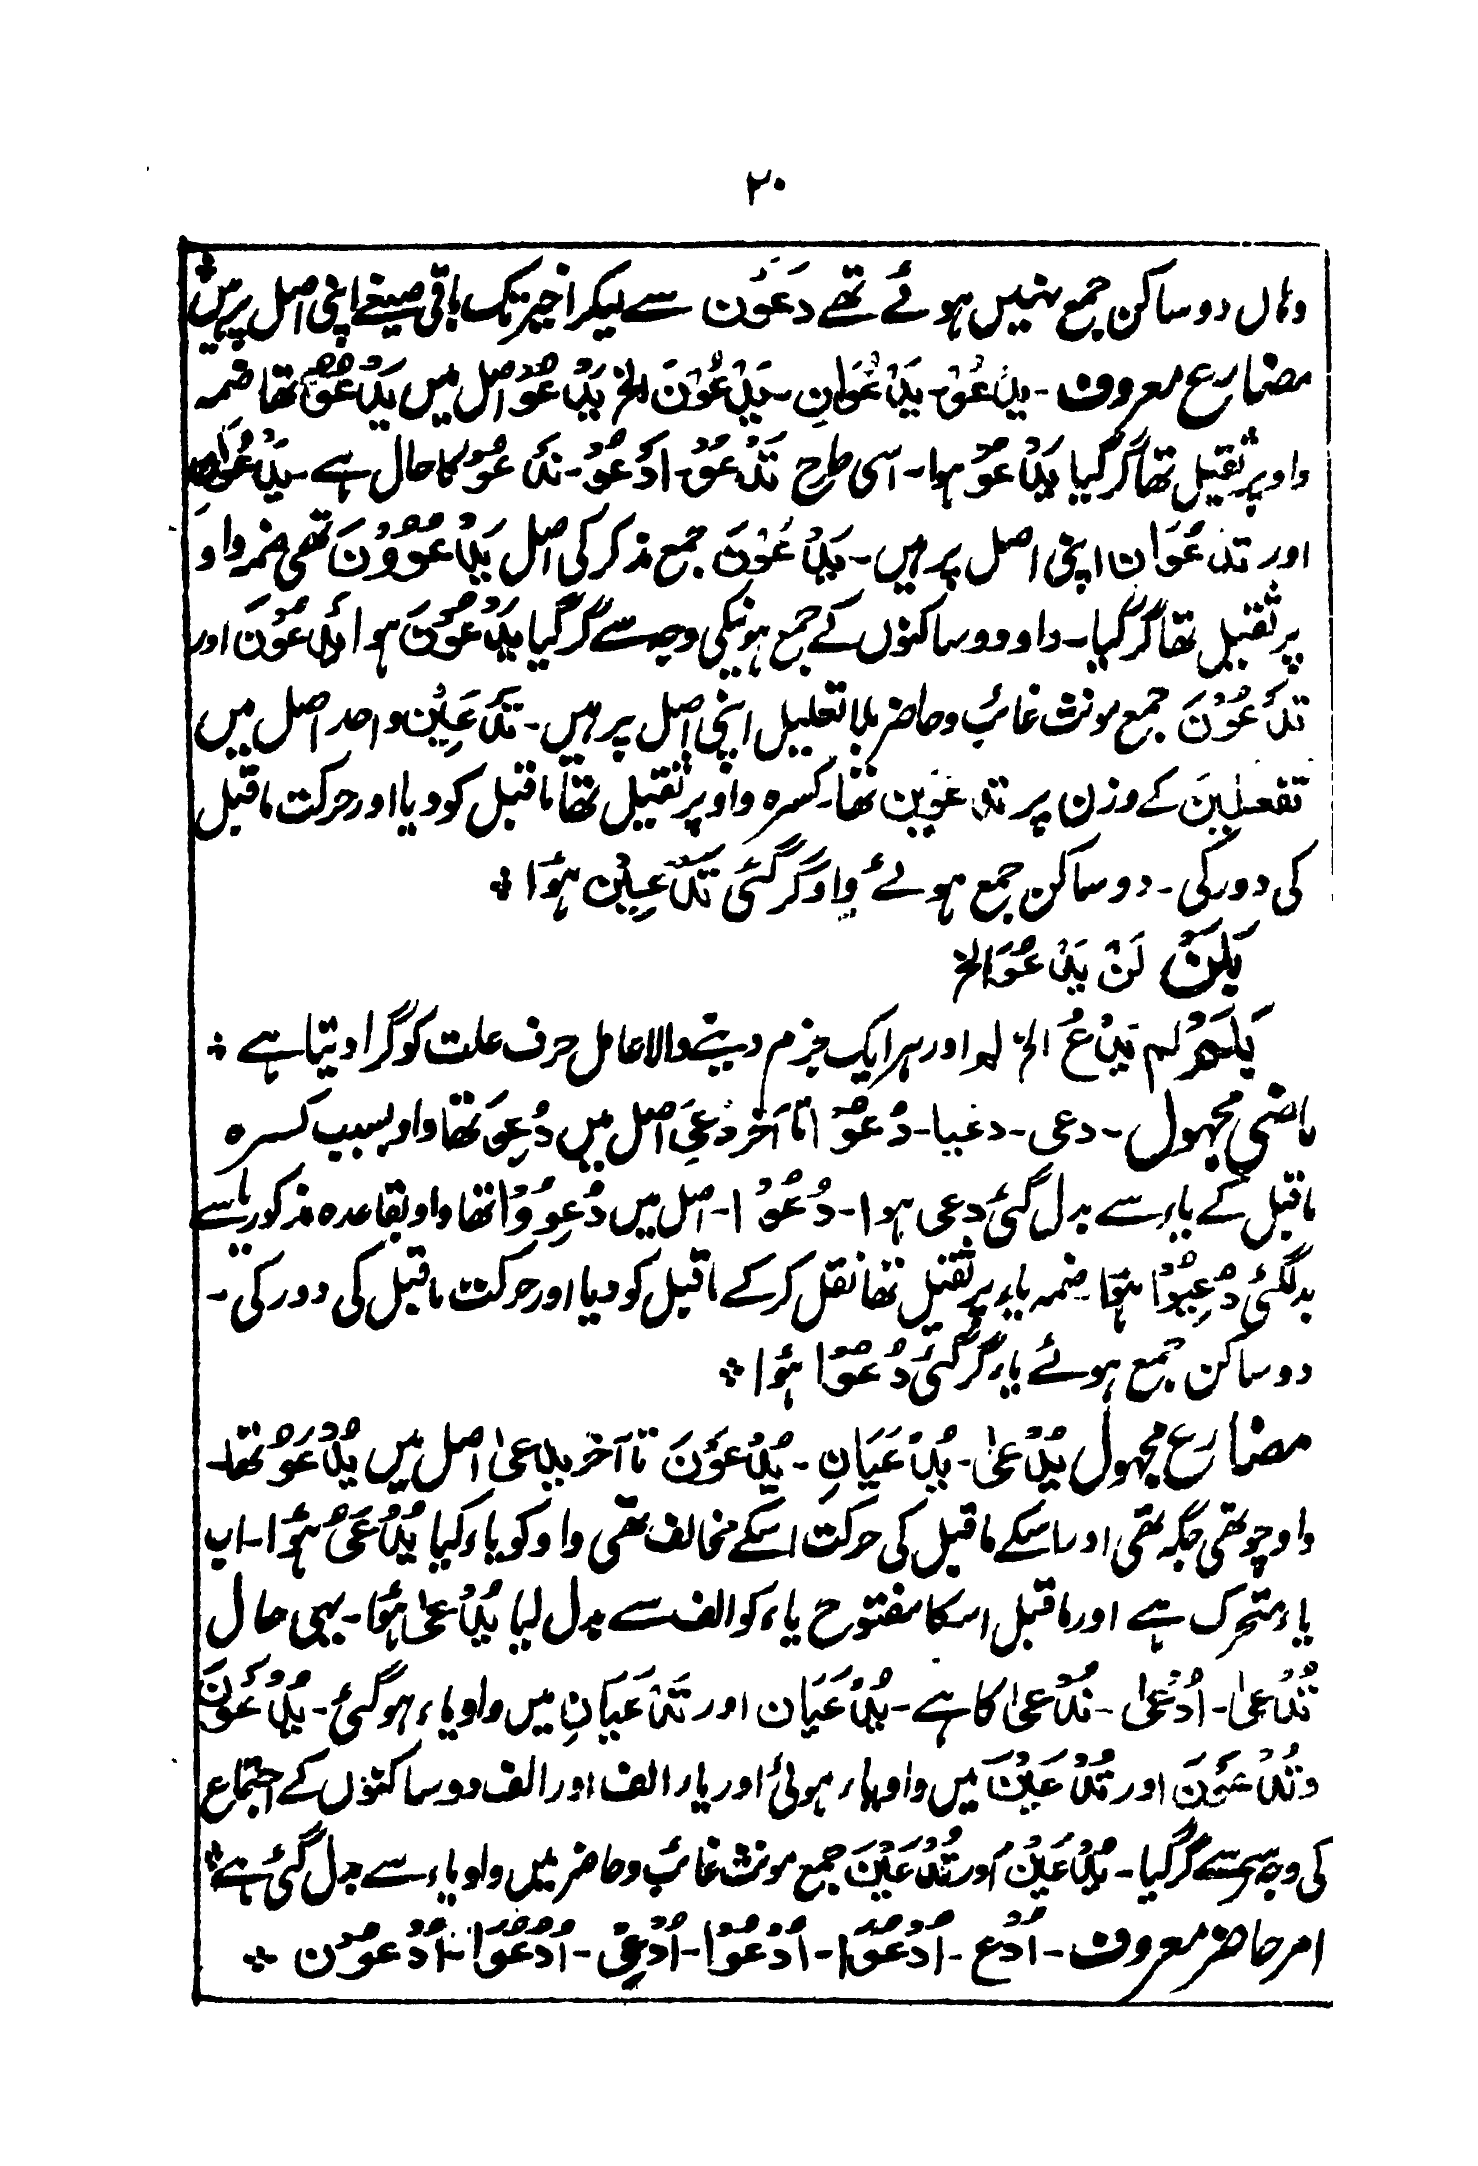 ۲۰
وہاں دو ساکن جمع نہیں ہوئے تھے دَعَوْن سے لیکر اخیر تک باقی صیغے اپنی اصل پر ہیں ؞
مضارع معروف - یدعُوْ - یَدْعُوَانِ - یَدْعُوْنَ الخ یَدْعُوْ اصل میں یَدْعُوُ تھا ضمہ
واو پر ثقیل تھا گر گیا یَدْعُوْ ہوا - اسی طرح تَدْعُوْ - اَدْعُوْ - نَدْعُوْ کا حال ہے - یَدْعُوَانِ
اور تدعُوَانِ اپنی اصل پر ہیں - یَدْعُوْنَ جمع مذکر کی اصل یَدْعُوُوْنَ تھی ضمہ واو
پر ثقیل تھا گر گیا - واو دو ساکنوں کے جمع ہونیکی وجہ سے گر گیا یَدْعُوْنَ ہوا یَدْعُوْنَ اور
تَدْعُوْنَ جمع مونث غائب و حاضر بلا تعلیل اپنی اصل پر ہیں - تَدْعِیْن واحد اصل میں
تفعلین کے وزن پر تدعوین تھا - کسرہ واو پر ثقیل تھا ماقبل کو دیا اور حرکت ماقبل
کی دور کی - دو ساکن جمع ہوئے واو گر گئی تَدْعِیْن ہوَا ؞
بَلَنْ لَنْ یَدْعُوَ الخ
بَلَمْ لم یَدْعُ الخ لم اور ہر ایک جزم دینے والا عامل حرف علت کو گرا دیتا ہے ؞
ماضی مجہول - دعی - دعیا - دُعُوْا تا آخر دُعِیَ اصل میں دُعِوَ تھا واو بسبب کسرہ
ماقبل کے یاء سے بدل گئی دعی ہوا - دُعُوْا - اصل میں دُعِوُوْا تھا واو بقاعدہ مذکور یا سے
بدل گئی دُعِیُوْا ہؤا - ضمہ یاء پر ثقیل تھا نقل کر کے ماقبل کو دیا اور حرکت ماقبل کی دور کی -
دو ساکن جمع ہوئے یاء گر گئی دُعُوْا ہؤا ؞
مضارع مجہول یُدْعٰی - یُدْعَیَانِ - یُدْعَوْنَ تا آخر یدعیٰ اصل میں یُدْعَوُ تھا -
واو چوتھی جگہ تھی اور اسکے ماقبل کی حرکت اسکے مخالف تھی واو کو یاء کیا یُدْعَیُ ہؤا - اب
یاء متحرک ہے اور ماقبل اسکا مفتوح یاء کو الف سے بدل لیا یُدْعیٰ ہؤا - یہی حال
تُدْعیٰ - اُدْعیٰ - نُدْعیٰ کا ہے - یُدْعَیَان اور تُدْعَیَانِ میں واو یاء ہو گئی - یُدْعَوْنَ
و تُدْعَوْنَ اور تُدْعَیْنَ میں واو یاء ہوئی اور یاء الف اور الف دو ساکنوں کے اجتماع
کی وجہ سے گر گیا - یُدْعَیْنَ اور تُدْعَیْنَ جمع مونث غائب و حاضر میں واو یاء سے بدل گئی ہے ؞
امر حاضر معروف - اُدْع - اُدْعُوَا - اُدْعُوْا - اُدْعِیْ - اُدْعُوَا - اُدْعُوْن ؞